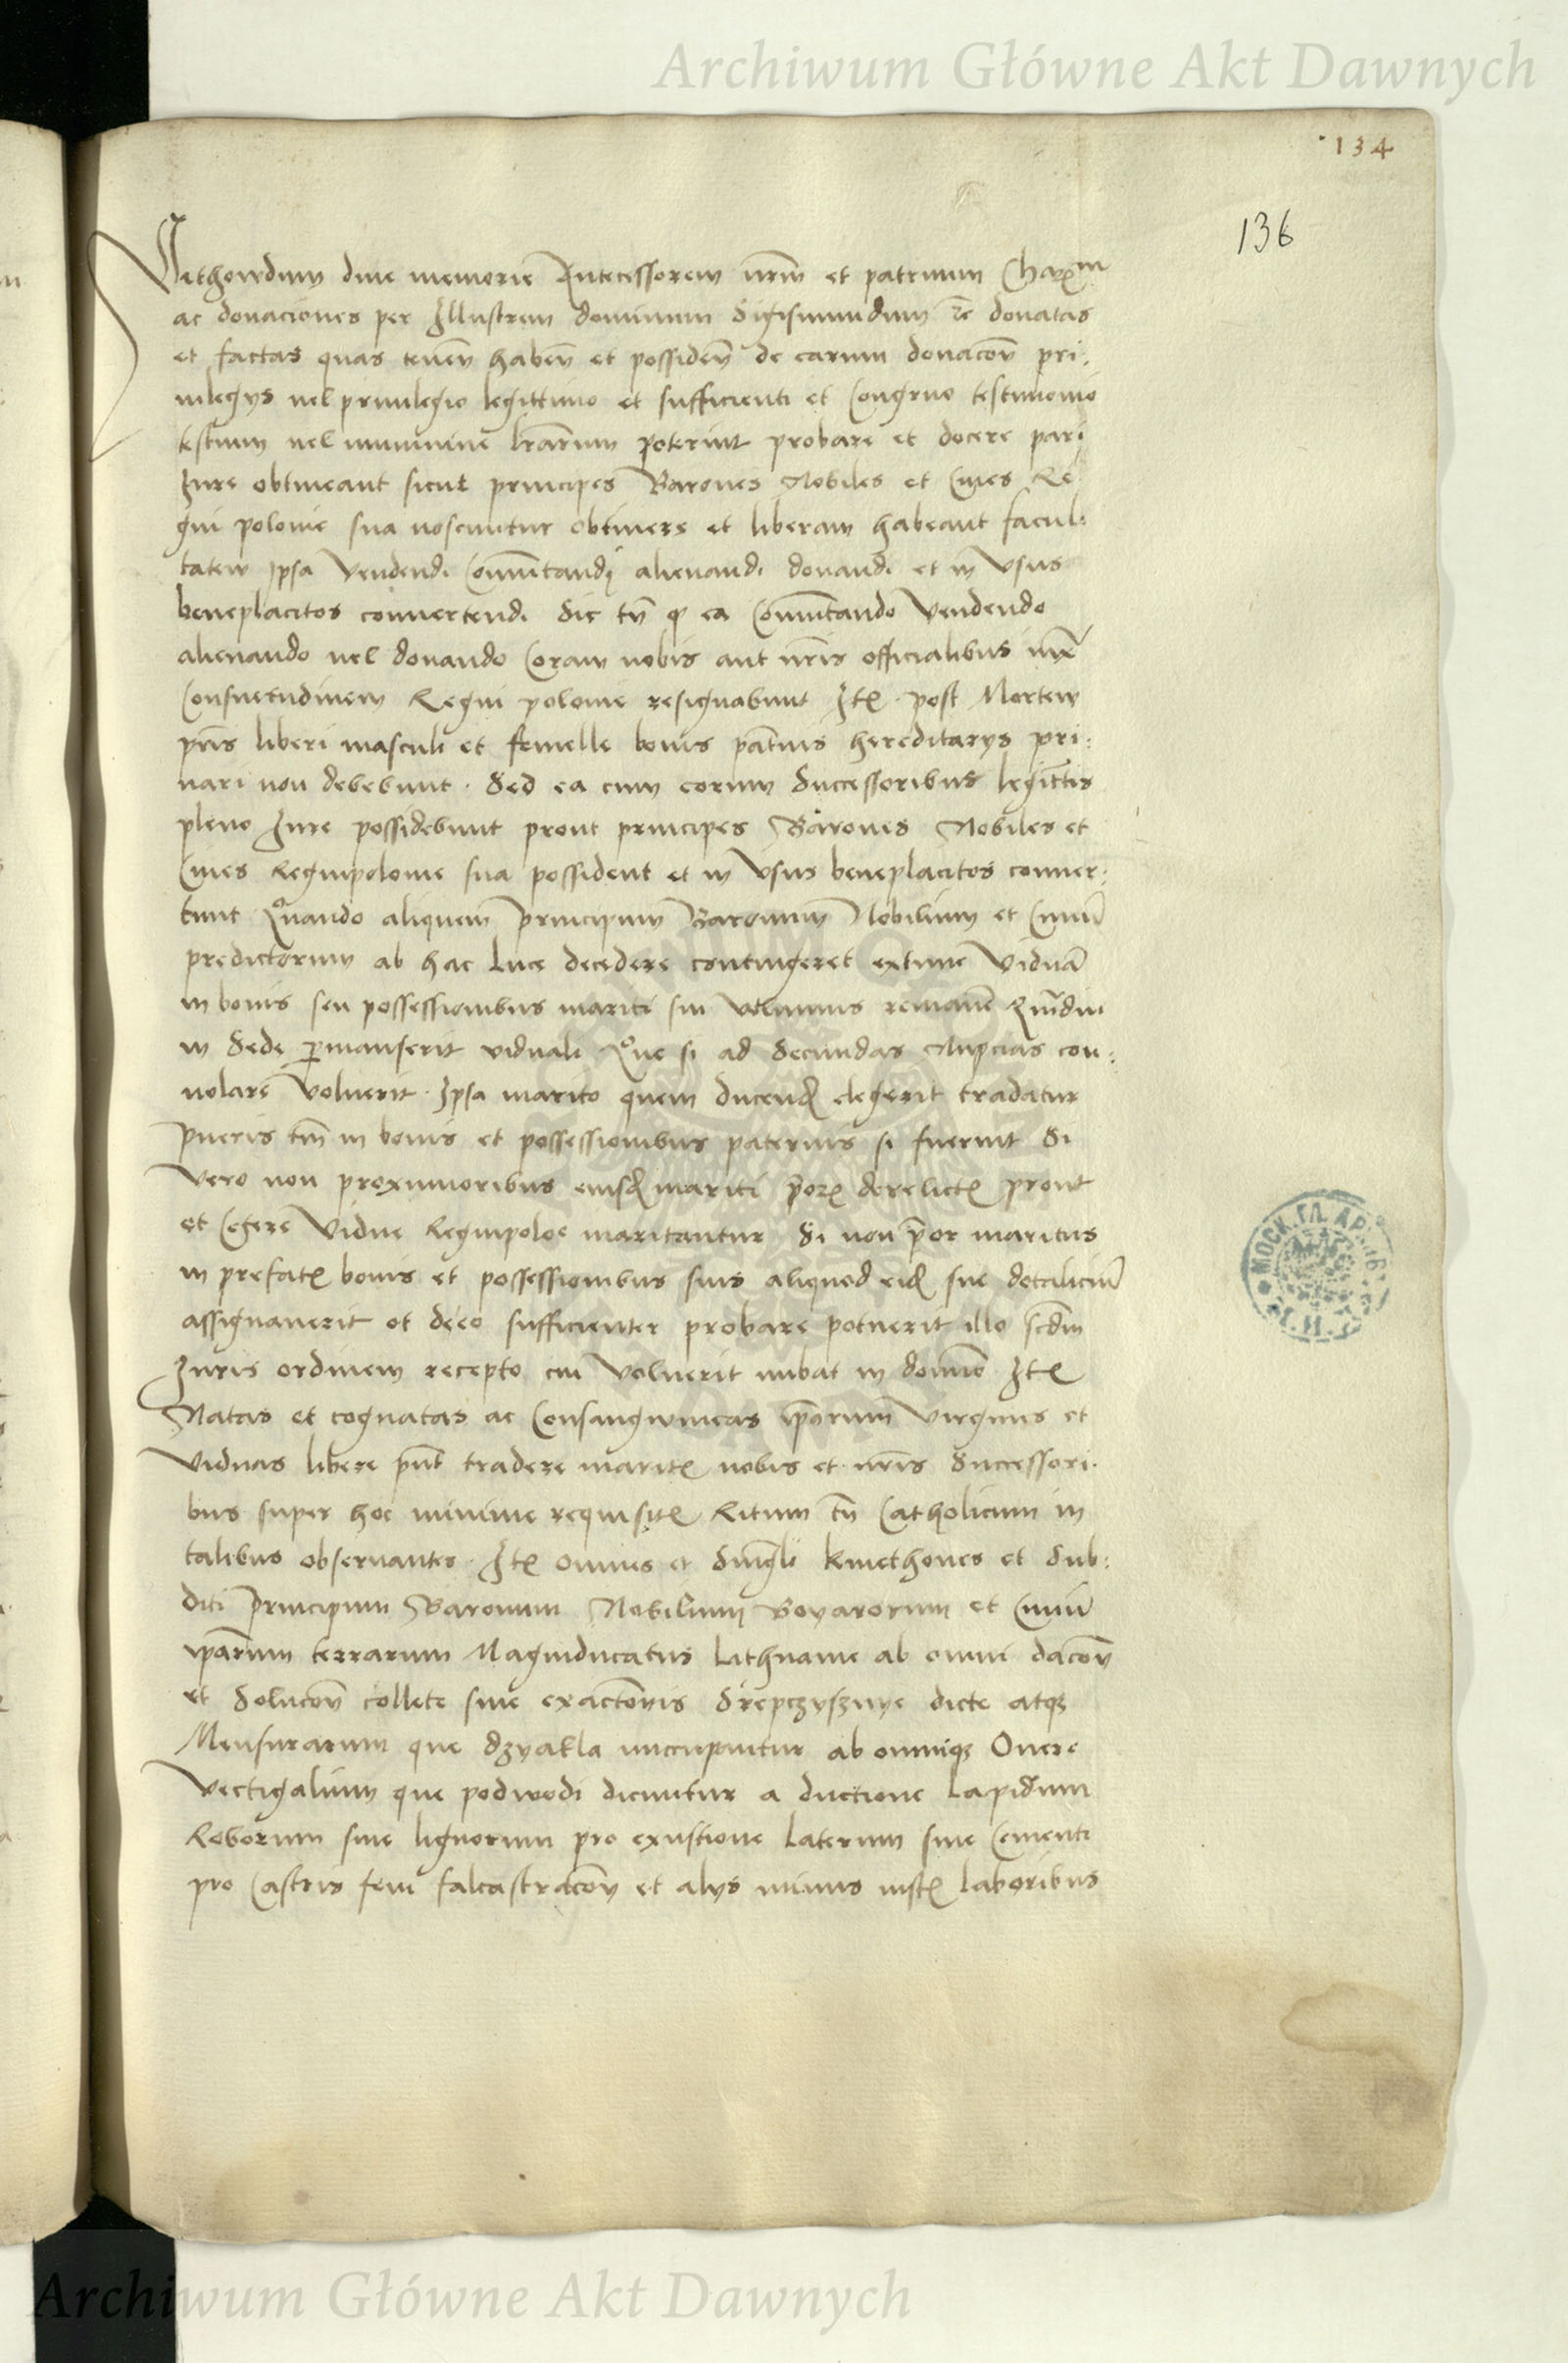 Archiwum Główne Akt Dawnych
134
136
Vethowdum dive memorie Antecessorem nrm̄ et patruum Charm̄
ac donaciones per Illustrem dominum Sigismundum &c donatas
et factas quas teneñ habeñ et possideñ de earum donacoñ pri:
vilegys vel privilegio legittimo et sufficienti et Congruo testimonio
testium vel munimine lrarum poterint probare et docere pari
Jure obtineant sicut principes Barones Nobiles et Cives Re
gni polonie sua noscuntur obtinere et liberam habeant facul:
tatem Ipsa Vendendi Comutandi alienandi donandi et in Vsus
beneplacitos convertendi Sic tn̄ q ea Comutando Vendendo
alienando vel donando Coram nobis aut nr̄is officialibus iux̄
Consuetudinem Regni polonie resignabunt Itē post Mortem
pr̄is liberi masculi et femelle bonis pat̄nis hereditarys pri:
vari non debebunt. Sed ea cum eorum Successoribus legittis
pleno Jure possidebunt prout principes Barones Nobiles et
Cives Regnipolonie sua possident et in Vsus beneplacitos conver:
tunt Quando aliquem principum Baronum Nobilium et Civiū
predictorum ab hac Luce decedere contingeret extunc Viduā
in bonis seu possessionibus mariti sui Volumus remanē Qm̄diu
in Sede p̄manserit viduali Que si ad Secundas Nupcias con:
volare Voluerit. Ipsa marito quem ducend̄ elegerit tradatur
pueris tm̄ in bonis et possessionibus paternis si fuerint Si
Vero non proximioribus eiusd̄ mariti p̄orꝫ derelictꝫ prout
et Cetere Vidue Regnipoloe maritantur Si non p̄or maritus
in prefatꝫ bonis et possessionibus suis aliquod eid̄ sue dotaliciū
assignaverit et de eo sufficienter probare potuerit illo scdm̄
Juris ordinem recepto cui Voluerit nubat in domīo Itē
Natas et cognatas ac Consangwineas ip̄orum Virgines et
Viduas libere p̄nt tradere maritꝫ nobis et nr̄is Successori.
bus super hoc minime requisitꝫ Ritum tn̄ Catholicum in
talibus observantes. Itē Omnes et Singl̄i Kmethones et Sub:
diti Principum Baronum Nobilium Boyarorum et Civiū
ip̄arum terrarum Magniducatus Lithuanie ab omni dacoñ
et Solucoñ collete sive exactonis Srepczysznye dicte atqꝫ
Mensurarum que dzyakla nuncupantur ab omniqꝫ Onere
Vectigalium que podwodi dicuntur a ductione Lapidum
Roborum sive lignorum pro exustione Laterum sive Cementi
pro Castris feni falcastracoñ et alys minus iustꝫ Laboribus
Archiwum Główne Akt Dawnych